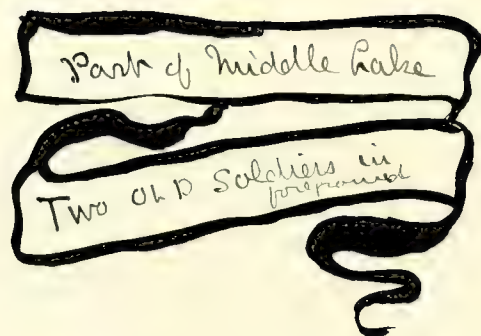 Part of Middle Lake
Two OLD Soldiers in
foreground